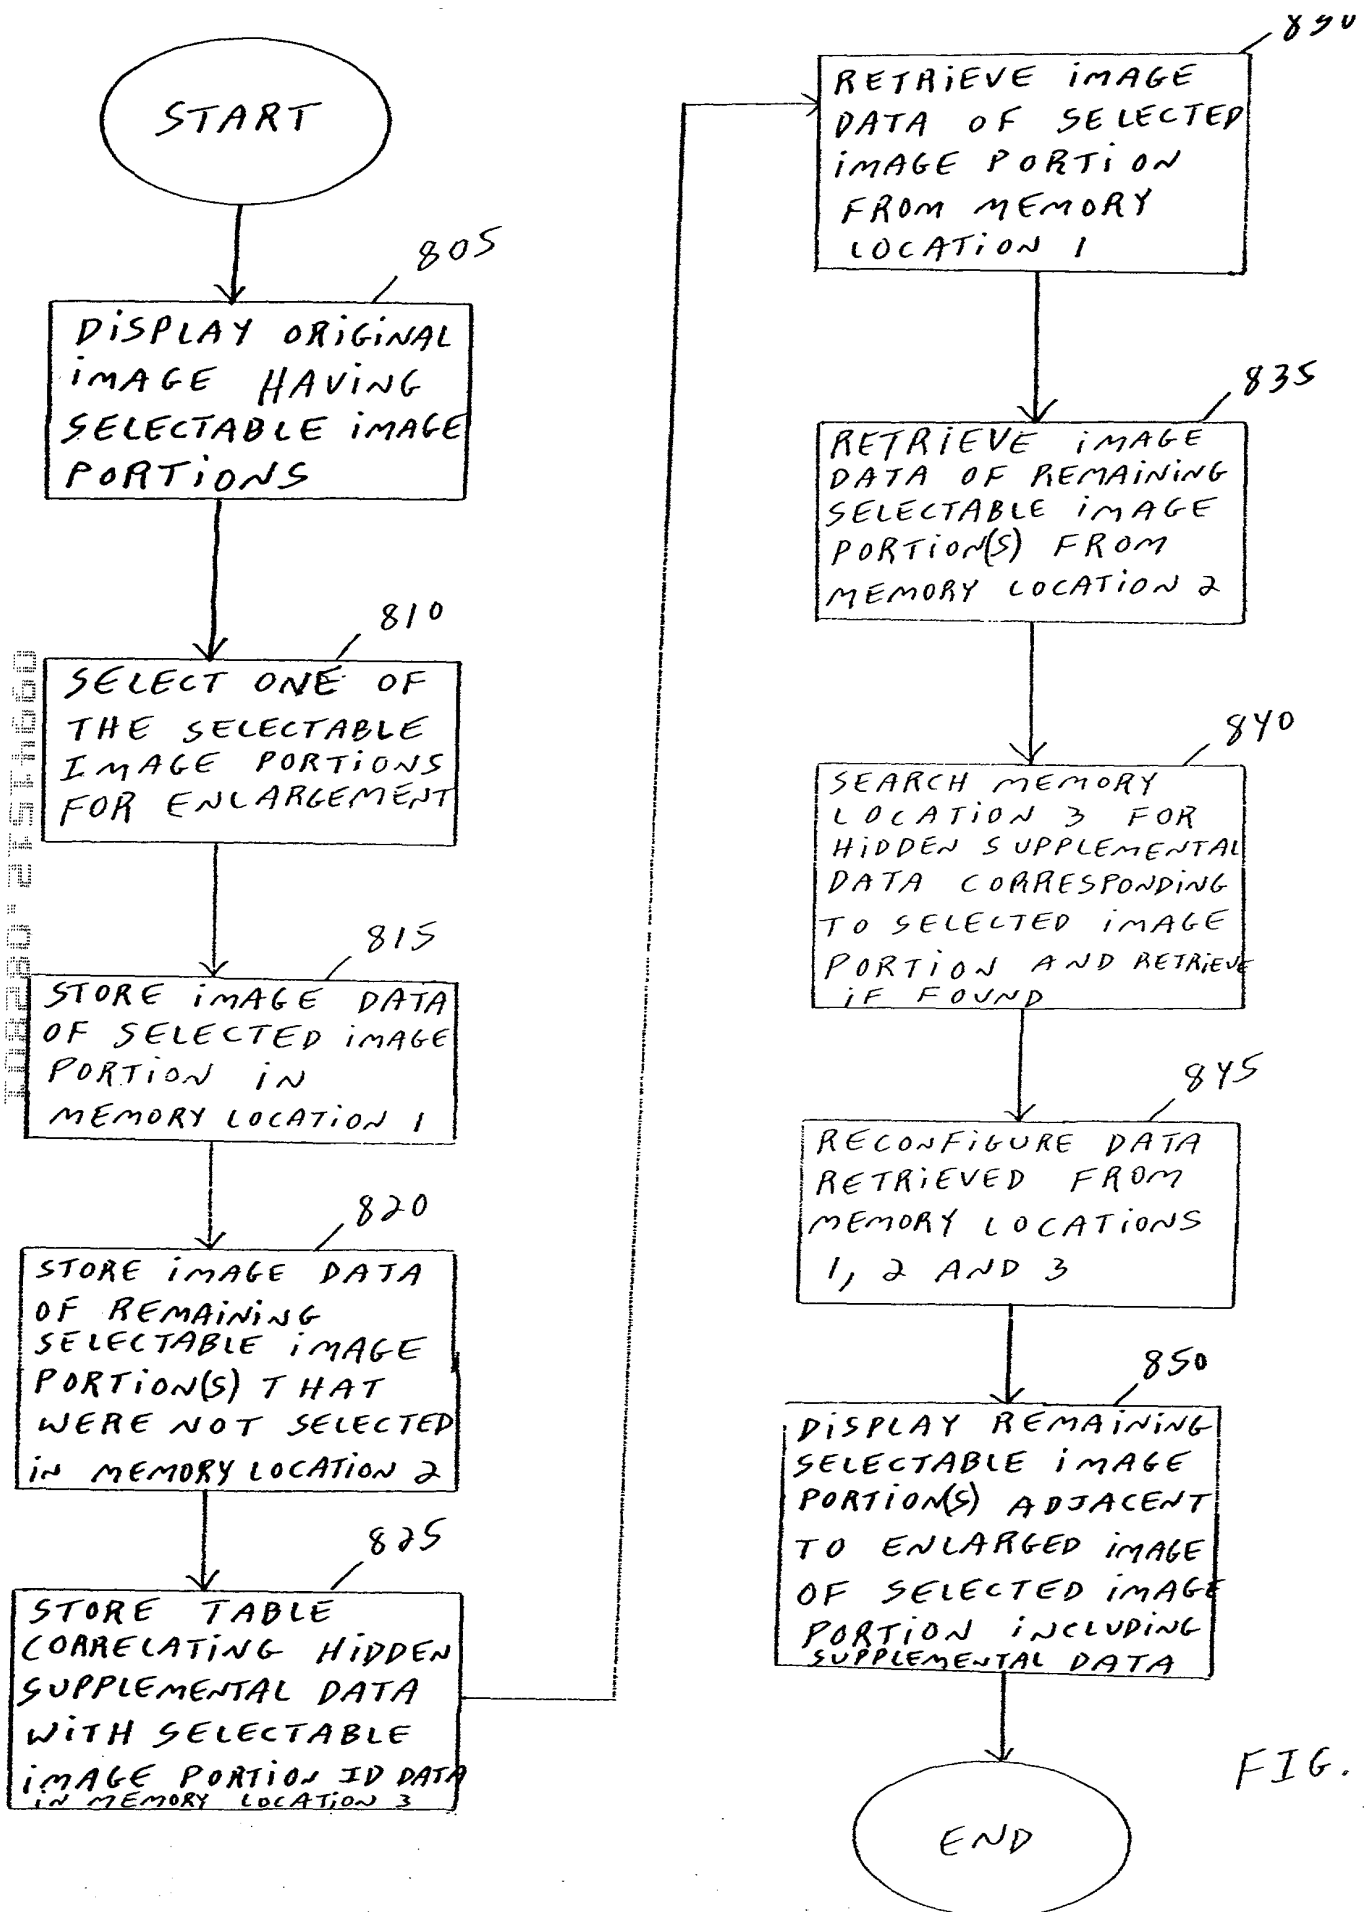 START
805
DISPLAY ORIGINAL
IMAGE HAVING
SELECTABLE IMAGE
PORTIONS
810
SELECT ONE OF
THE SELECTABLE
IMAGE PORTIONS
FOR ENLARGEMENT
815
STORE IMAGE DATA
OF SELECTED IMAGE
PORTION IN
MEMORY LOCATION 1
820
STORE IMAGE DATA
OF REMAINING
SELECTABLE IMAGE
PORTION(S) THAT
WERE NOT SELECTED
IN MEMORY LOCATION 2
825
STORE TABLE
CORRELATING HIDDEN
SUPPLEMENTAL DATA
WITH SELECTABLE
IMAGE PORTION ID DATA
IN MEMORY LOCATION 3
830
RETRIEVE IMAGE
DATA OF SELECTED
IMAGE PORTION
FROM MEMORY
LOCATION 1
835
RETRIEVE IMAGE
DATA OF REMAINING
SELECTABLE IMAGE
PORTION(S) FROM
MEMORY LOCATION 2
840
SEARCH MEMORY
LOCATION 3 FOR
HIDDEN SUPPLEMENTAL
DATA CORRESPONDING
TO SELECTED IMAGE
PORTION AND RETRIEVE
IF FOUND
845
RECONFIGURE DATA
RETRIEVED FROM
MEMORY LOCATIONS
1, 2 AND 3
850
DISPLAY REMAINING
SELECTABLE IMAGE
PORTION(S) ADJACENT
TO ENLARGED IMAGE
OF SELECTED IMAGE
PORTION INCLUDING
SUPPLEMENTAL DATA
END
FIG.